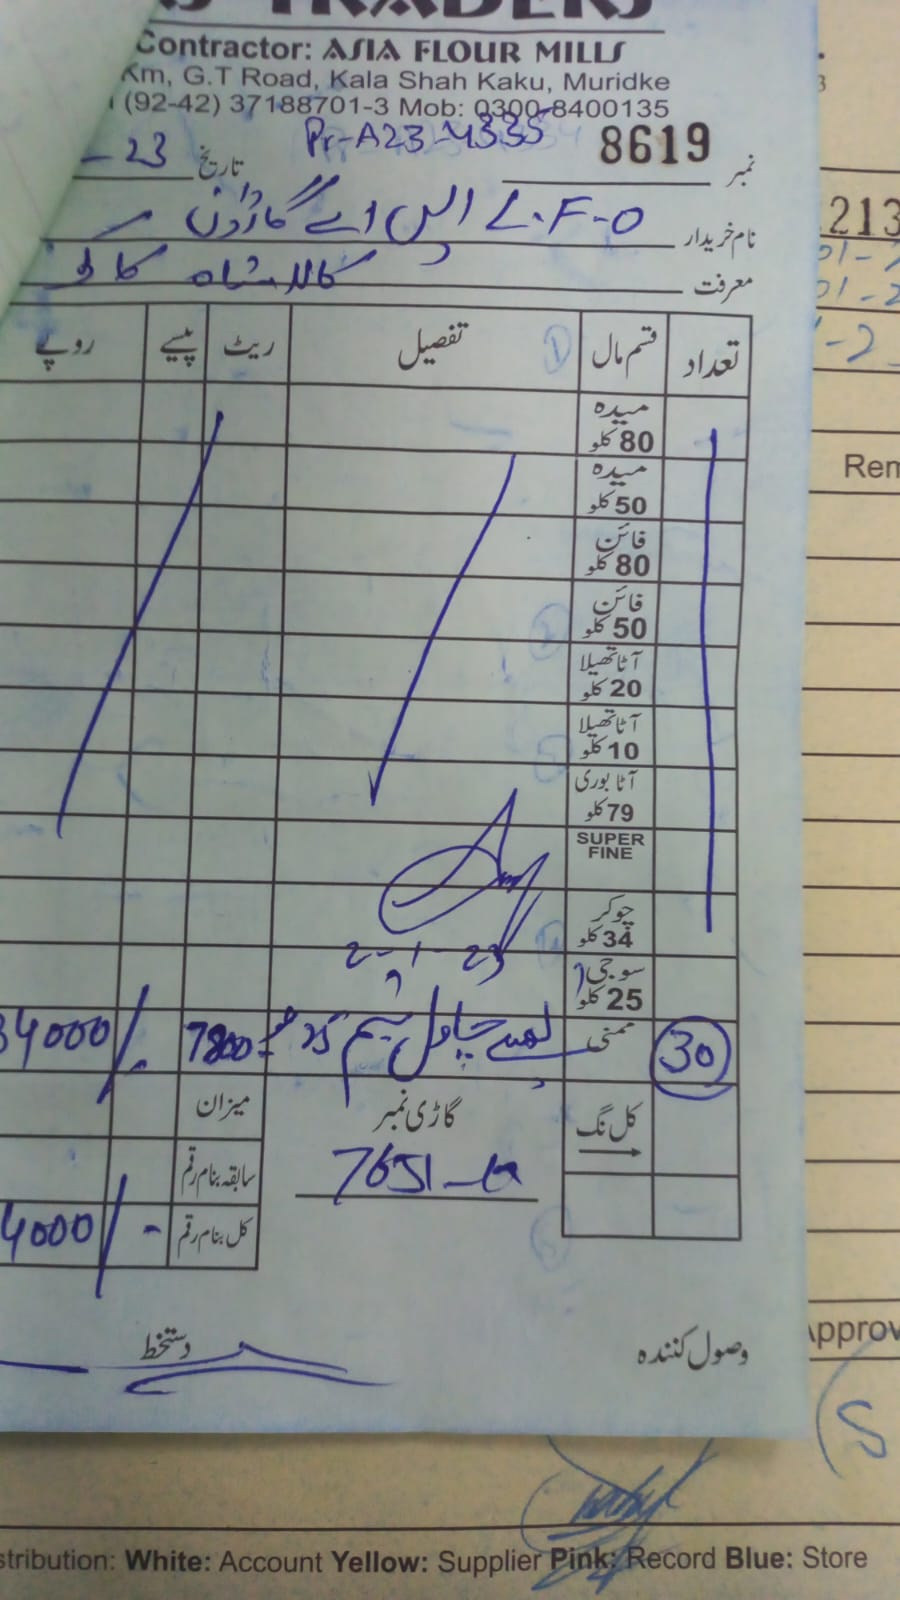 TRADERS
Contractor: ASIA FLOUR MILLS
Km, G.T Road, Kala Shah Kaku, Muridke
(92-42) 37188701-3 Mob: 0300-8400135
Pr-A23-4335
نمبر 8619 تاریخ -23
نام خریدار L.F-O ایس اے گارڈن
معرفت کالا شاہ کاکو
تعداد قسم مال تفصیل ریٹ پیسے روپے
میدہ
80 کلو
میدہ
50 کلو
فائن
80 کلو
فائن
50 کلو
آٹا تھیلا
20 کلو
آٹا تھیلا
10 کلو
آٹا بوری
79 کلو
SUPER
FINE
چوکر
34 کلو
2-1-23
سوجی
25 کلو
30 چاول 7800 34000/-
کل نگ گاڑی نمبر میزان
7651
سابقہ بنام رقم
کل بنام رقم 4000/-
وصول کنندہ دستخط
213
Rem
Approv
stribution: White: Account Yellow: Supplier Pink: Record Blue: Store